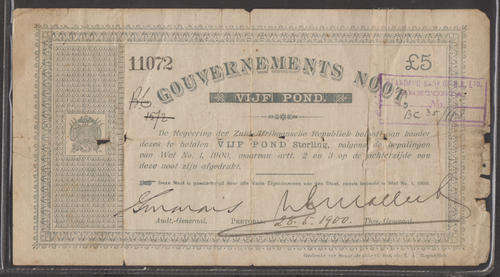 11072 £5
GOUVERNEMENTS NOOT.
VIJF POND.
De Regeering der Zuid Afrikaansche Republiek betaalt aan houder
dezes te betalen VIJF POND Sterling, volgens de bepalingen
van Wet No. 1, 1900, waarvan artt. 2 en 3 op de achterzijde van
deze noot zijn afgedrukt.
Deze Noot is gewaarborgd door alle Vaste Eigendommen van den Staat, zooals bepaald in Wet No. 1, 1900.
Audt.-Generaal. PRETORIA, 28.5.1900 Thes. Generaal.